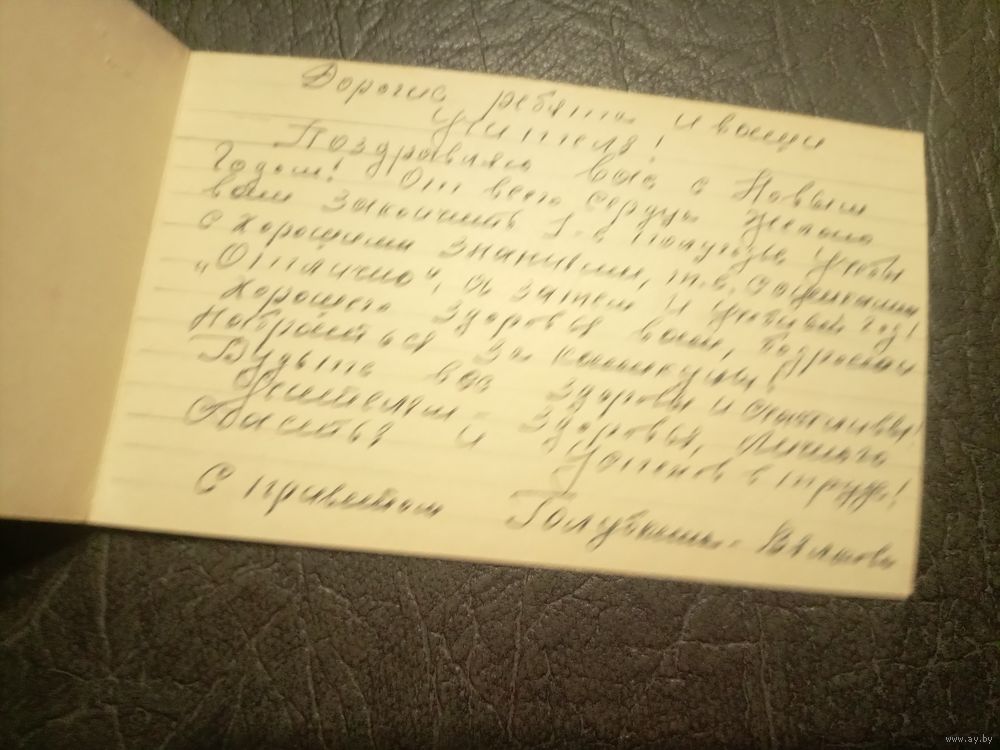 Дорогие ребята и ваши
учителя!
Поздравляю вас с Новым
Годом! От всего сердца желаю
вам закончить 1-е полугодие учебы
с хорошими знаниями, т.е. с оценками
„Отлично", а затем и учебный год!
Хорошего здоровья вам, бодрости
набраться за каникулы!
Будьте все здоровы и счастливы!
Учителям - здоровья, личного
счастья и успехов в труде!
С приветом
www.ay.by